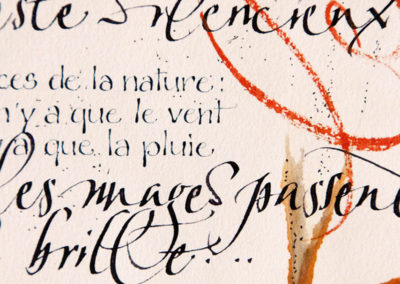 este silencieux
ces de la nature :
n'y a que le vent
y a que la pluie
les nuages passent
brille...